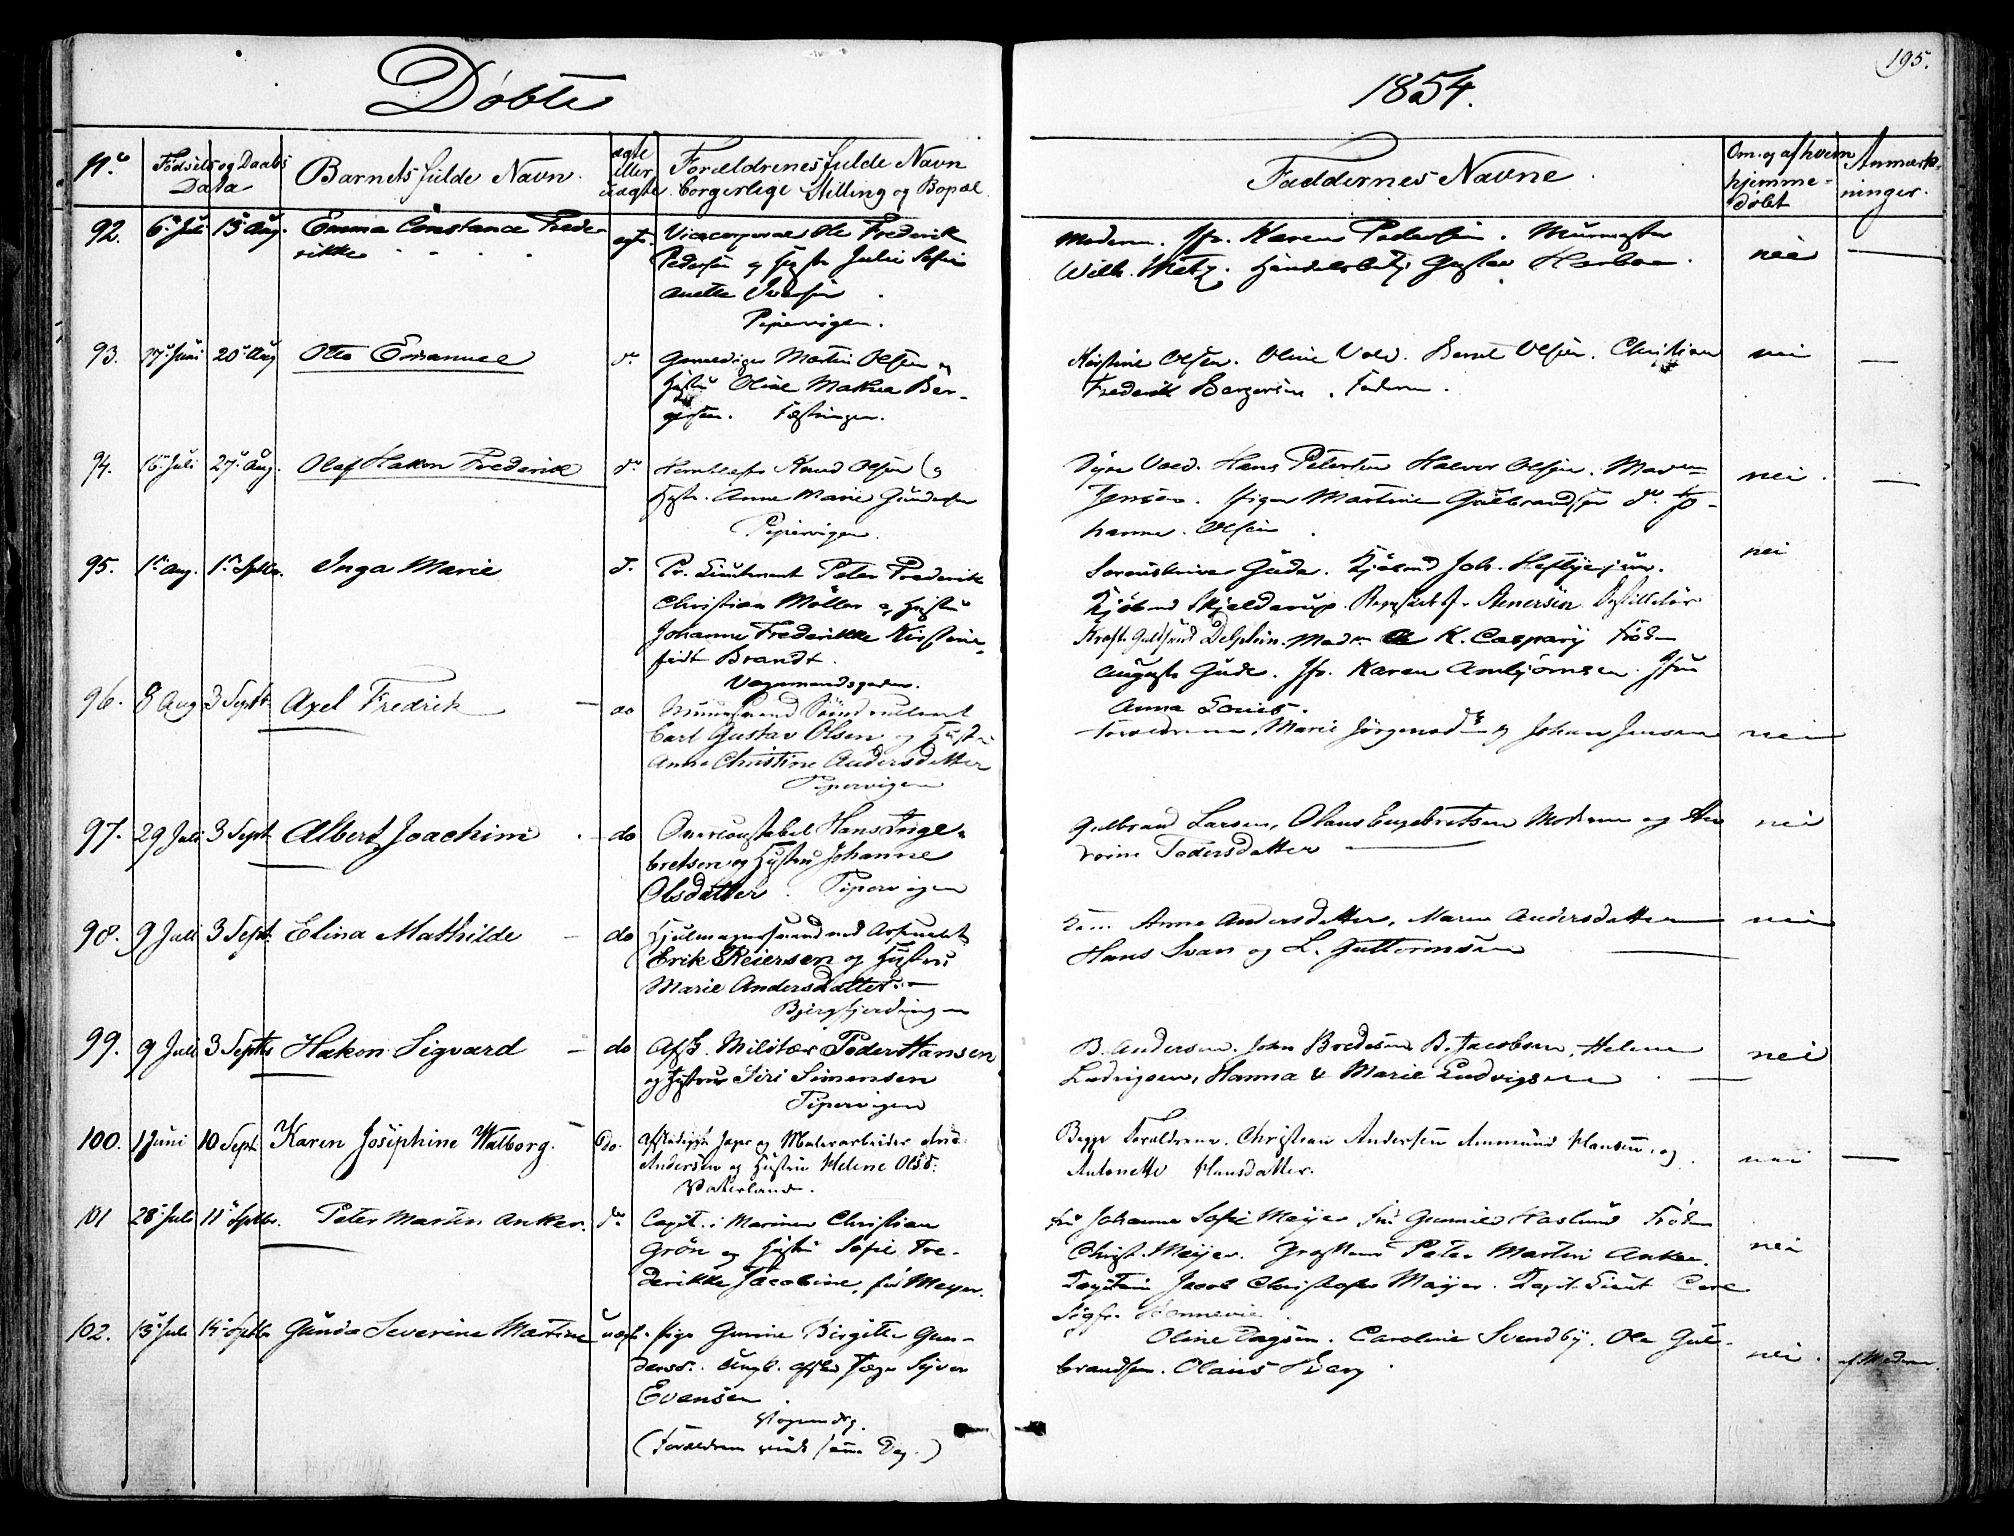 195.
Döbte
1854.
No Födsels og Daabs Data
Barnets fulde Navn.
ægte eller uægte
Forældrenes fulde Navn
borgerlige Stilling og Bopæl
Faddernes Navne.
Om og af hvem hjemmedöbt
Anmærkninger.
92. 6 Juli 13 Aug. Emma Constance Frederikke
Vicecorporal Ole Frederik
Pedersen og Hustr Julie Sofie
Anette Iversen
Pipervigen.
Moderen. Jfr. Karen Pedersen. Murmester
Wilh. Metz. Handelsbetj. Gustav Harboe.
nei
93. 17 Juni 20 Aug Otto Emanuel
do
Martin Olsen og
Hustru Oline Makrea Bergersen. Fæstningen.
Kirstine Olsen. Oline Vold. Bernt Olsen. Christian
Frederik Bergersen. Faderen.
nei
94. 16 Juli 27 Aug. Olaf Hakon Frederik
do
Knud Olsen og
Hustr. Anne Marie Gundersen
Pipervigen.
Vold. Hans Petersen Halvor Olsen. Maren
Jensen. Pigen Martine Gulbrandsen do. Johanne Olsen.
nei.
95. 1 Aug. 1 Septbr. Inga Marie
do
Pr. Lieutenant Peter Frederik
Christian Möller og Hustru
Johanne Frederikke Kirstine
födt Brandt.
Vognmandsgaden.
Sorenskriver Gude. Kjöbmd Joh. Heftye jun.
Kjöbmd Skjelderup. Stenersen Destillatör
Kraft. Guldsmed Delphin. Mad. K. Caspary Fröken
Augusta Gude. Jfr. Karen Ambjörnsen. Jfr
Anna Louis.
nei
96. 8 Aug 3 Septbr. Axel Fredrik
do
Murersvend
Carl Gustav Olsen og Hustru
Anne Christine Andersdatter
Pipervigen
Forældrene, Marie Jörgensdtr og Johan Jensen
nei
97. 29 Juli 3 Sept Albert Joachim
do
Overconstabel Hans Ingebretsen og Hustru Johanne
Olsdatter. Pipervigen
Gulbrand Larsen, Olaus Engebretsen Moderen og
Pedersdatter
nei
98. 9 Juli 3 Sept. Elina Mathilde
do
Hjulmagersvend ved Arsenalet
Erik Reiersen og Hustru
Marie Andersdatter.
Bjergfjerdingen
Anne Andersdatter, Maren Andersdatter
Hans Svan og L. Guttormsen
nei
99. 9 Juli 3 Septbr Hakon Sigvard
do
Afsk. Militær Peder Hansen
og Hustru Siri Simensen
Pipervigen
B. Andersen. John Bredesen, B. Jacobsen, Helene
Ludvigsen, Hanna & Marie Ludvigsen
nei
100. 1 Juni 10 Sept. Karen Josephine Walborg.
do.
Afskediget Jæger og Malerarbeider
Andersen og Hustru Helene Olsd.
Vaterland.
Begge Forældrene. Christian Andersen Ammund Hansen, og
Antonette Hansdatter.
nei
101 28 Juli 11 Septbr. Peter Martin Anker.
do
Capt. i Marinen Christian
Grön og Hustru Sofie Frederikke Jacobine, föd Meyer.
Fru Johanne Sofie Meyer Fru Gunnild Haslund Fröken
Christ. Meyer. Peter Martin Anker.
Capitain Jacob Christofer Meyer. Capt. Lieut Carl
nei
102. 13 Juli 14 Septbr Gunda Severine Martine
uægt.
Pige Gurine Birgitte Gunderss. Ungk. afsked Jæger Syver
Evensen.
(Forældrene viede samme Dag.)
Oline Dagsen. Caroline Svendby. Ole Gulbrandsen. Olaus Berg
nei.
af Moderen.